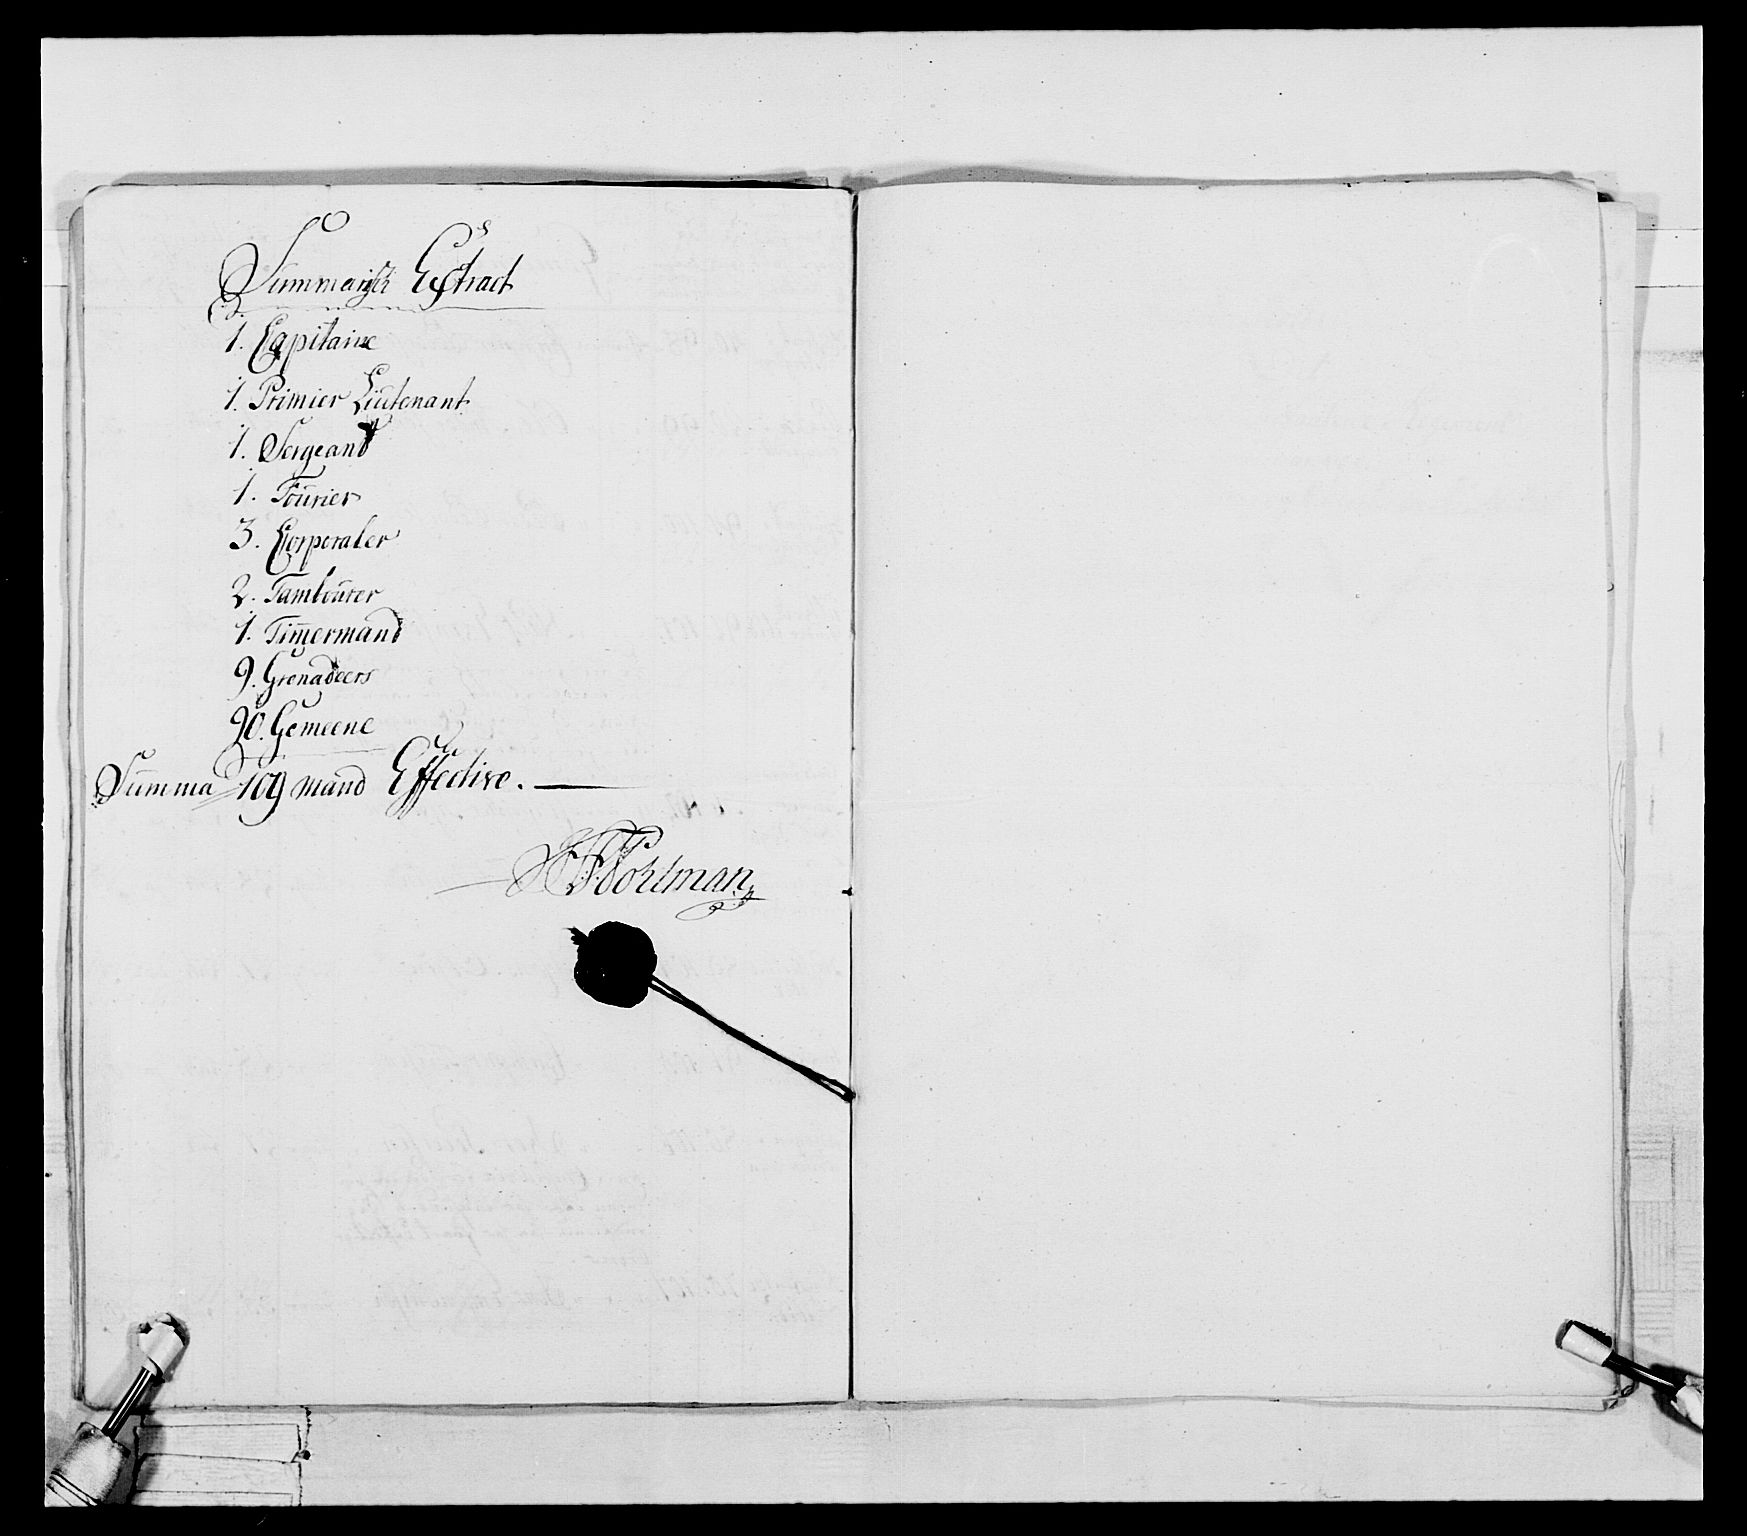 Summarisk Extract
1. Capitaine
1. Primier Lieutenant
1. Sergeant
1. Fourier
3. Corporaler
2. Tambourer
1. Timmermand
9. Grenadeers
90. Gemeene
Summa 109 mand Effective.
Pohlman